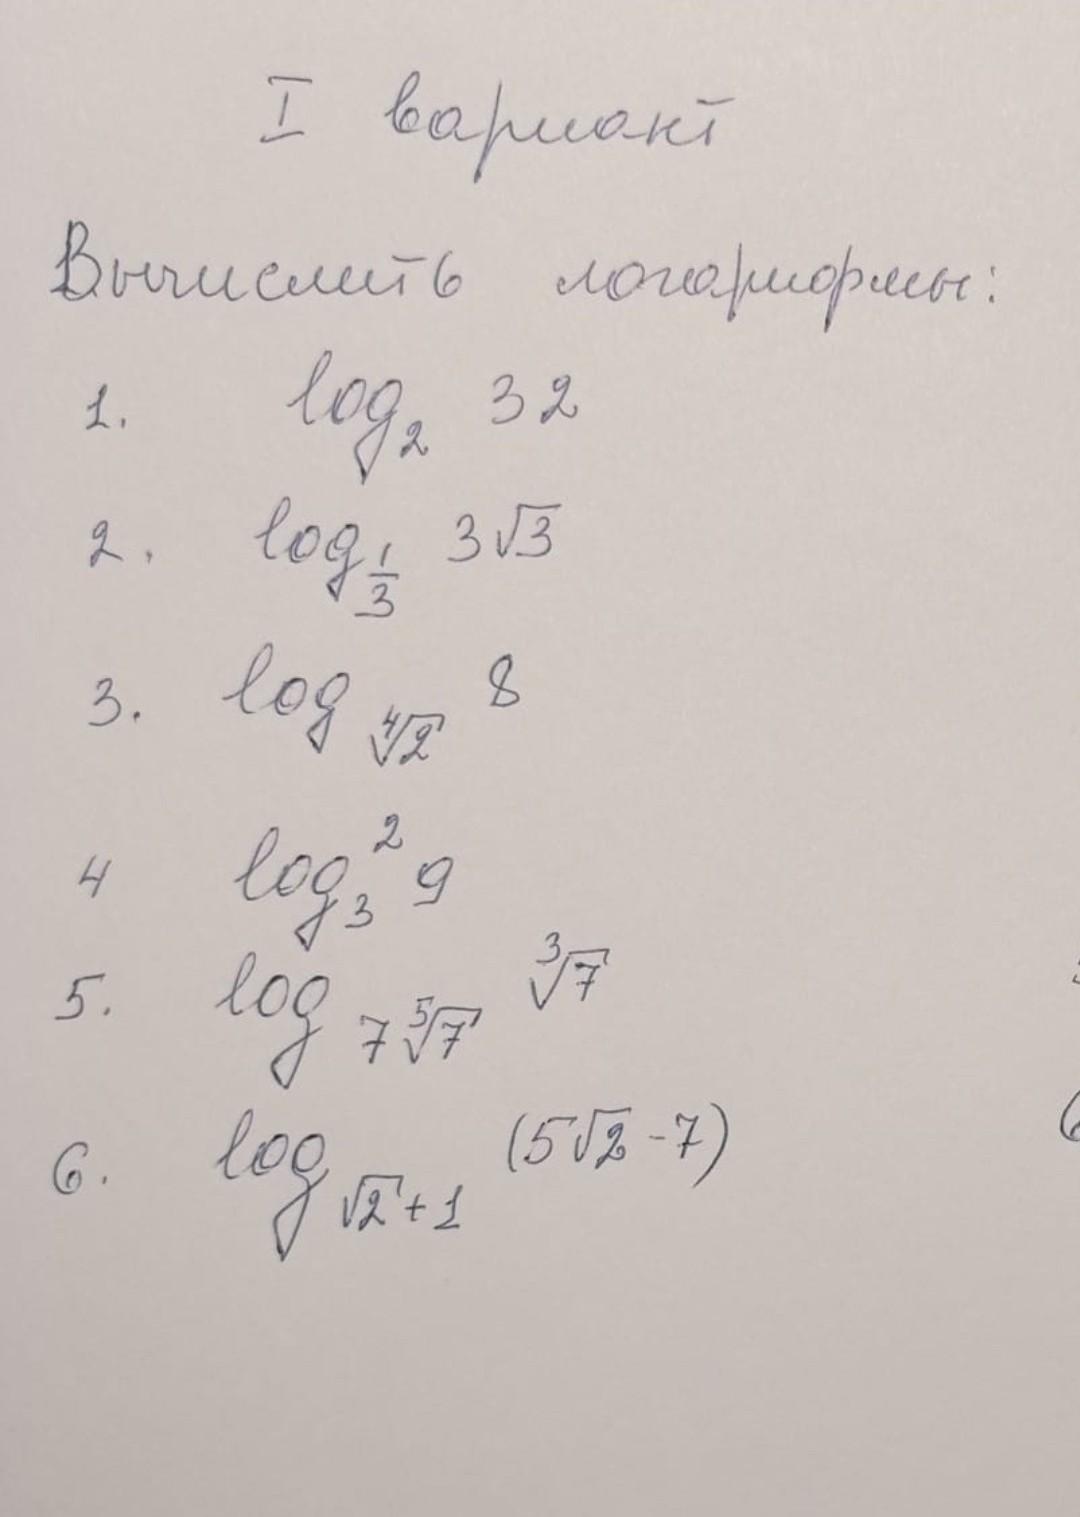 I вариант
Вычислить логарифмы:
1. log₂ 32
2. log_{1/3} 3√3
3. log_{⁴√2} 8
4 log₃² 9
5. log_{7⁵√7} ³√7
6. log_{√2+1} (5√2-7)